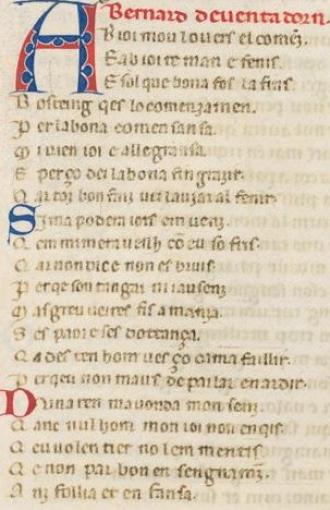 BERNARD deuentadorn.
AB ioi mou lo uers el comēz.
E ab ioi reman e fenis.
E sol que bona fos la fins.
B os teing qes lo comenzamen.
P er la bona comensansa.
M i uien ioi e allegransa.
E per ço dei la bona fin grazir.
Q ar toz bon faiz uei lauzar al fenir.
S i ma podera iois em uenz.
Q em miraueilh cō eu so fris.
Q ar non dic e non es bruis.
P er qe son tan gai ni iausenz
M as greu ueires fin amanza.
S es paor e ses dottança.
Q ades ten hom ues ço cama faillir.
P er qeu non maus de parlar enardir.
D una ren mauonda mon senz.
Q anc nul hom mon ioi non enqis.
Q eu uolentier no len mentis.
Q e non par bon enseignamz̄.
A nz follia et enfansa.